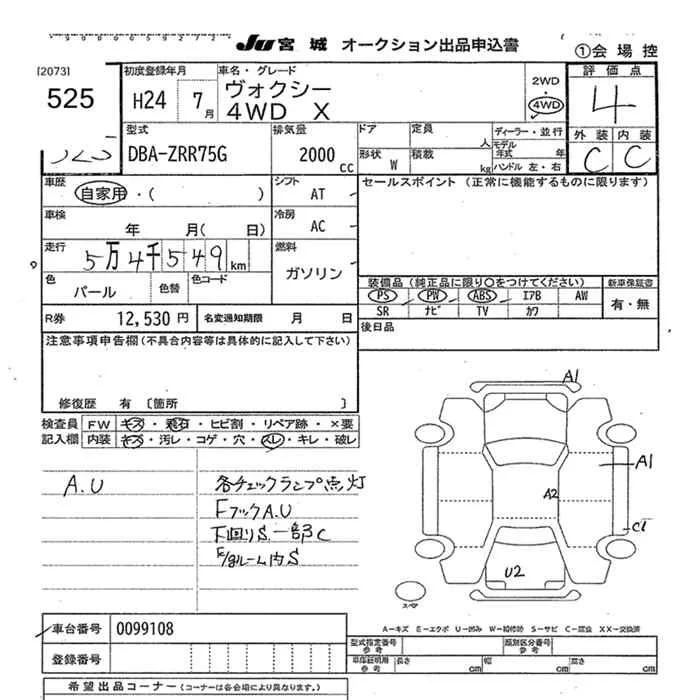 JU 宮城 オークション出品申込書
①会場控
[2073]
525
初度登録年月
H24 7月
車名・グレード
ヴォクシー
4WD X
2WD
・
4WD
評価点
4
外装 内装
C C
525
型式
DBA-ZRR75G
排気量
2000cc
ドア 定員 人
形状 W 積載 kg
ディーラー・並行
モデル年式 年
ハンドル 左・右
車歴 自家用・( )
シフト AT
セールスポイント (正常に機能するものに限ります)
車検 年 月( 日)
冷房 AC
走行 5万4千549km
燃料 ガソリン
色 パール 色替 色コード
装備品 (純正品に限り○をつけてください)
新車保証書
PS PW ABS エアB AW
SR ナビ TV カワ
有・無
R券 12,530円 名変通知期限 月 日
後日品
注意事項申告欄(不具合内容等は具体的に記入して下さい)
修復歴 有 〔箇所 〕
検査員 FW キズ・飛石・ヒビ割・リペア跡・×要
記入欄 内装 キズ・汚レ・コゲ・穴・スレ・キレ・破レ
A.U
各チェックランプ点灯
FフックA.U
下回りS.一部C
ルーム内S
A1
A1
A2
C1
U2
スペア
A-キズ E-エクボ U-凹み W-補修跡 S-サビ C-腐食 XX-交換済
車台番号 0099108
登録番号
型式指定番号 参考
類別区分番号 参考
車庫証明用 参考 長さ cm 幅 cm 高さ cm
希望出品コーナー (コーナーは各会場により異なります。)